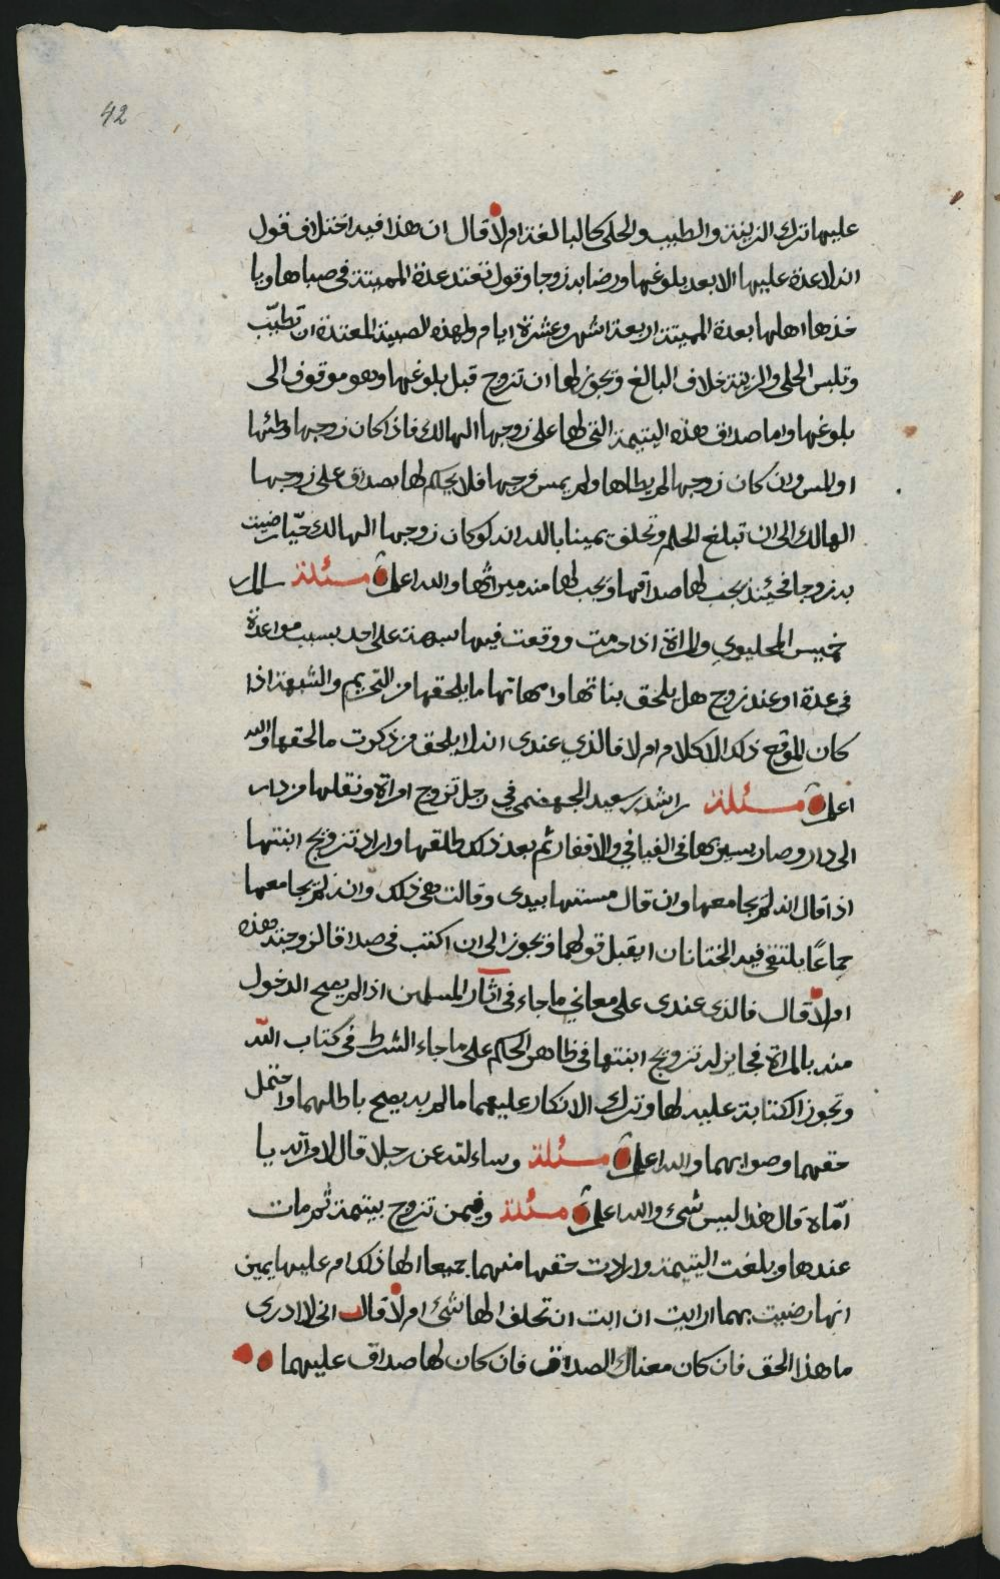 42
عليها ترك الزينة والطيب والحلى كالبالغة ام لا قال ان هذا فيه اختلاف فقول
انه لا عدة عليها الا بعد بلوغها ورضا به زوجا وقول تعتد عدة المميتة في صباها ويا
خذها اهلها بعدة المميتة اربعة اشهر وعشرة ايام ولهذه الصبية المعتدة ان تطيّب
وتلبس الحلي والزينة خلاف البالغ ويجوز لها ان تزوج قبل بلوغها وهو موقوف الى
بلوغها واما صداق هذه اليتيمة التي لها على زوجها الهالك فاذا كان زوجها وطئها
او لمس وان كان زوجها لم يطاها ولم يمس فرجها فلا يحكم لها بصداق على زوجها
الهالك الى ان تبلغ الحلم وتحلف يمينا بالله انه لو كان زوجها الهالك حيّا رضيت
به زوجا فحينئذ يجب لها صداقها ويجب لها منه ميراثها والله اعلم مسئلة
خميس المحليوي والمراة اذا حرمت ووقعت فيها شبهة على احد بسبب مواعدة
في عدة او عند تزوج هل يلحق بناتها وامهاتها ما يلحقها من التحريم والشبهة اذا
كان لم يقع ذلك الا كلام ام لا فالذي عندي انه لا يلحق من ذكرت ما لحقها والله
اعلم مسئلة راشد بن سعيد الجهضمي في رجل تزوج امراة ونقلها من دار
الى دار وصار يسير بها في الفيافي والاقفار ثم بعد ذلك طلقها واراد تزويج ابنتها
اذا قال انه لم يجامعها وان قال مستها بيدي وقالت هي ذلك وانه لم يجامعها
جماعًا يلتقي فيه الختانان ايقبل قولهما ويجوز لي ان اكتب في صداقا لزوجته هذه
ام لا قال فالذي عندي على معاني ما جاء في اثار المسلمين اذا لم يصح الدخول
منه بالمراة فجايز له تزويج ابنتها في ظاهر الحكم على ما جاء الشرط في كتاب الله
وتجوز الكتابة عليه لها وترك الانكار عليهما ما لم يصح باطلهما واحتمل
حقهما وصوابهما والله اعلم مسئلة وساءلته عن رجل قال لامراته يا
امّاه قال هذا ليس شيء والله اعلم مسئلة وفيمن تزوج يتيمة ثم مات
عندها وبلغت اليتيمة وارادت حقها منهما جميعا الها ذلك ام عليها يمين
انها رضيت بهما ارايت ان ابت ان تحلف الها شئ ام لا قال اني لا ادري
ما هذا الحق فان كان معناك الصداق فان كان لها صداق عليهما